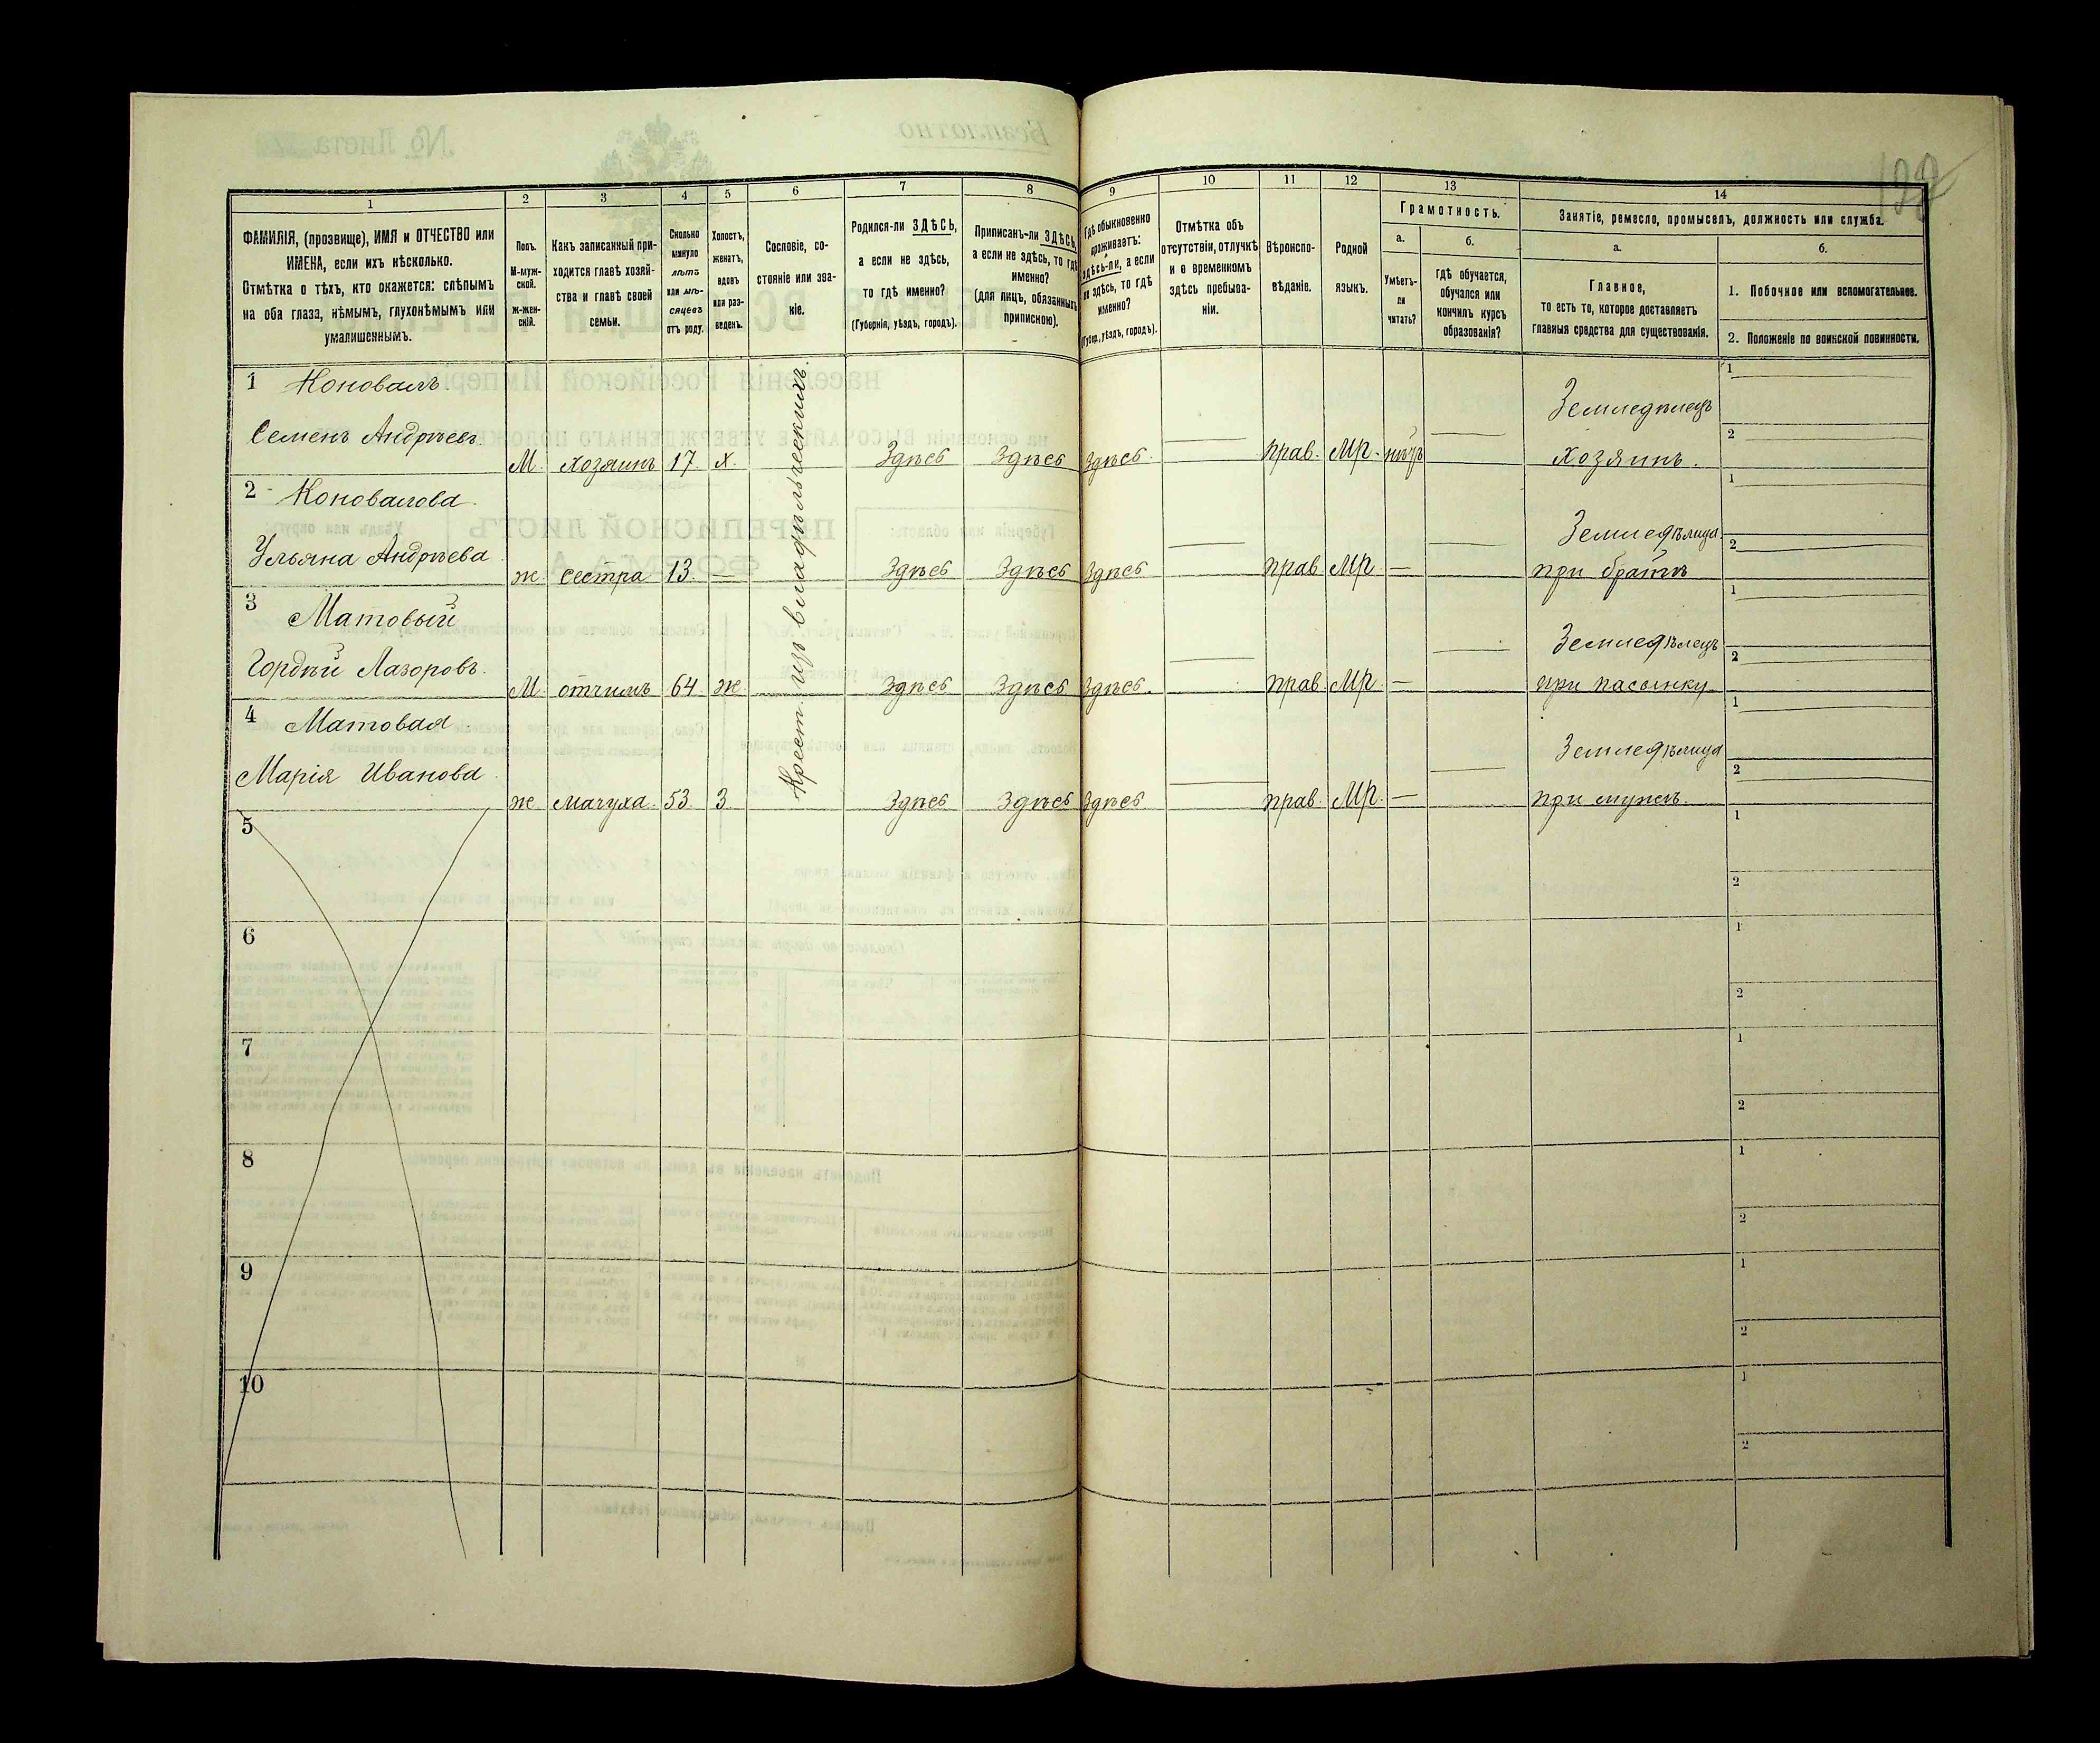 1 2 3 4 5 6 7 8 9 10 11 12 13 14
ФАМИЛІЯ, (прозвище), ИМЯ и ОТЧЕСТВО или
ИМЕНА, если ихъ нѣсколько.
Отмѣтка о тѣхъ, кто окажется: слѣпымъ
на оба глаза, нѣмымъ, глухонѣмымъ или
умалишеннымъ.
Полъ.
М-муж-
ской.
ж-жен-
скій.
Какъ записанный при-
ходится главѣ хозяй-
ства и главѣ своей
семьи.
Сколько
минуло
лѣтъ
или мѣ-
сяцевъ
отъ роду.
Холостъ,
женатъ,
вдовъ
или раз-
веденъ.
Сословіе, со-
стояніе или зва-
ніе.
Родился-ли ЗДѢСЬ,
а если не здѣсь,
то гдѣ именно?
(Губернія, уѣздъ, городъ).
Приписанъ-ли ЗДѢСЬ,
а если не здѣсь, то гдѣ
именно?
(для лицъ, обязанныхъ
припискою).
Гдѣ обыкновенно
проживаетъ:
здѣсь-ли, а если
не здѣсь, то гдѣ
именно?
(Губер., уѣздъ, городъ).
Отмѣтка объ
отсутствіи, отлучкѣ
и о временномъ
здѣсь пребыва-
ніи.
Вѣроиспо-
вѣданіе.
Родной
языкъ.
Грамотность.
а.
Умѣетъ-
ли
читать?
б.
гдѣ обучается,
обучался или
кончилъ курсъ
образованія?
Занятіе, ремесло, промыселъ, должность или служба.
а.
Главное,
то есть то, которое доставляетъ
главныя средства для существованія.
б.
1. Побочное или вспомогательное.
2. Положеніе по воинской повинности.
1 Коновалъ
Семенъ Андреевъ
М. хозяинъ 17. х. Здѣсь Здѣсь Здѣсь. прав. Мр. нѣтъ
Земледѣлецъ
хозяинъ.
1
2
2 Коновалова
Ульяна Андреева
ж. сестра 13. — Здѣсь Здѣсь Здѣсь прав Мр. —
Земледѣлица
при братѣ
1
2
3 Матовый
Гордѣй Лазоровъ.
М. отчимъ 64. ж. Здѣсь Здѣсь Здѣсь. прав. Мр. —
Земледѣлецъ
при пасынку
1
2
4 Матовая
Марія Иванова
ж мачуха. 53. З. Здѣсь Здѣсь Здѣсь прав. Мр. —
Земледѣлица
при мужѣ.
1
2
Крест. из владѣльческихъ.
5
1
2
6
1
2
7
1
2
8
1
2
9
1
2
10
1
2